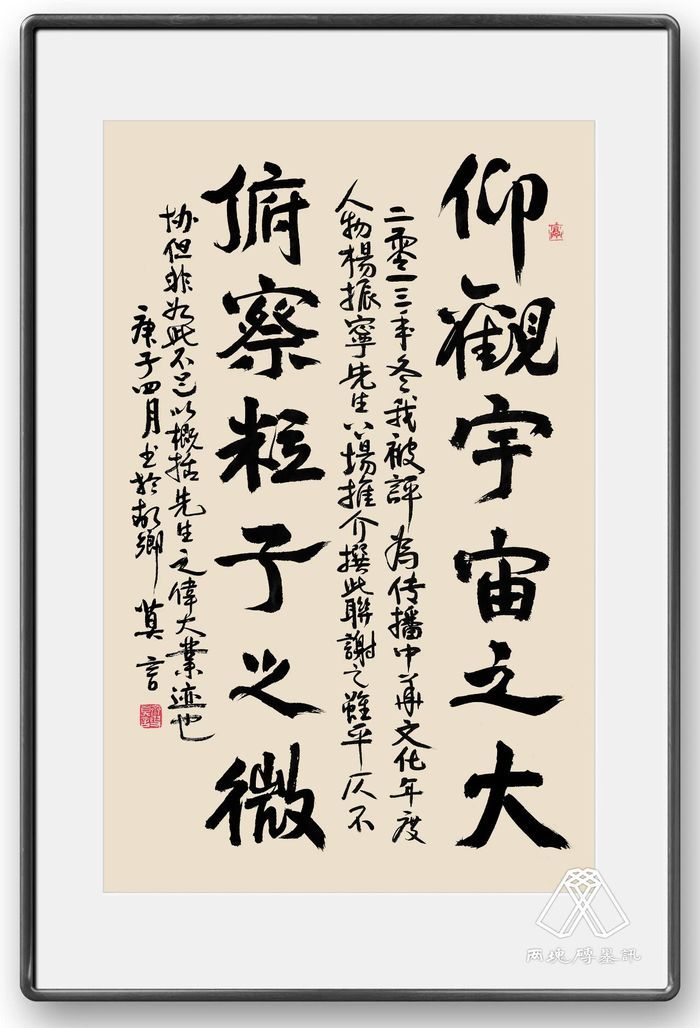 仰觀宇宙之大
二零一三年冬我被評為传播中華文化年度
人物楊振寧先生場推介撰此聯謝之雖平仄不
俯察粒子之微
协但非如此不足以概括先生之偉大業迹也
庚子四月书於故鄉 莫言
两塊磚墨訊